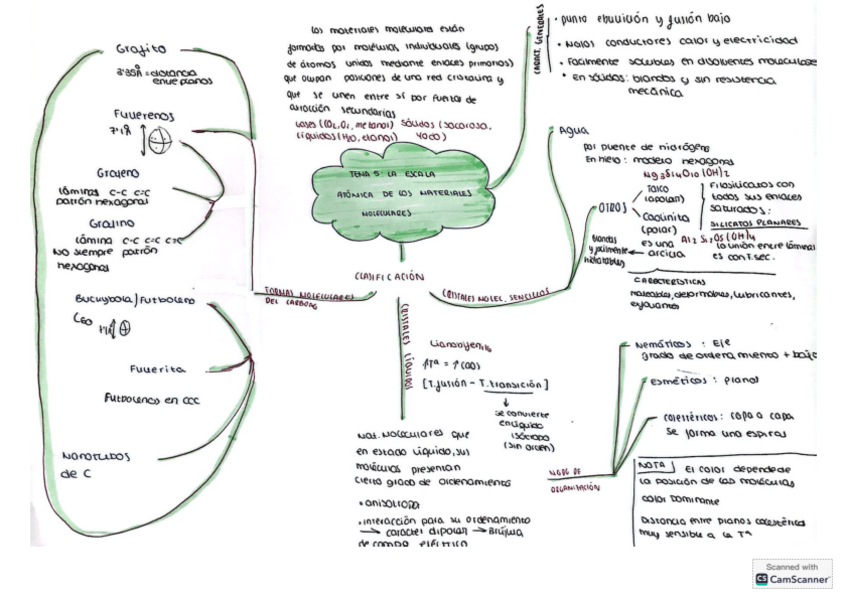 Los materiales moleculares están
formados por moléculas individuales (grupos
de átomos unidos mediante enlaces primarios)
que ocupan posiciones de una red cristalina y
que se unen entre sí por fuerzas de
atracción secundarias
Gases (CO2, O2, metanol) Sólidos (sacarosa,
Líquidos (H2O, etanol) yodo)
TEMA 5: LA ESCALA
ATÓMICA DE LOS MATERIALES
MOLECULARES
CARACT. GENERALES
• punto ebullición y fusión bajo
• Malos conductores calor y electricidad
• Facilmente solubles en disolventes moleculares
• En sólidos: blandos y sin resistencia
mecánica
CLASIFICACIÓN
FORMAS MOLECULARES
DEL CARBONO
Grafito
3'35Å = distancia
entre planos
Fullerenos
7'1Å
Grafeno
láminas C-C C=C
patrón hexagonal
Grafino
lámina C-C C=C C≡C
NO siempre patrón
hexagonal
Buckybola/Futboleno
C60
Fullerita
Futbolenos en CCC
Nanotubos
de C
CRISTALES MOLEC. SENCILLOS
Agua
por puente de hidrógeno
En hielo: modelo hexagonal
OTROS
Mg3Si4O10(OH)2
Talco
(apolar)
Caolinita
(polar)
Al2Si2O5(OH)4
es una
arcilla
Blandas
y fácilmente
hidratables
Filosilicatos con
todos sus enlaces
saturados:
SILICATOS PLANARES
la unión entre láminas
es con F.sec.
CARACTERÍSTICAS
moleables, deformables, lubricantes,
exfoliantes
CRISTALES LÍQUIDOS
[T.fusión - T.transición]
se convierte
en líquido
isótropo
(sin orden)
Mat. Moleculares que
en estado líquido, sus
moléculas presentan
cierto grado de ordenamiento
• anisótropo
• interacción para su ordenamiento
→ carácter dipolar → Brújula
de campo eléctrico
MODO DE
ORGANIZACIÓN
Nemáticos: Eje
grado de ordenamiento + bajo
Esméticos: planos
Colestéricos: capa a capa
se forma una espiral
NOTA El color depende de
la posición de las moléculas
color dominante
Distancia entre planos colestéricos
muy sensible a la Tª
Scanned with
CS CamScanner